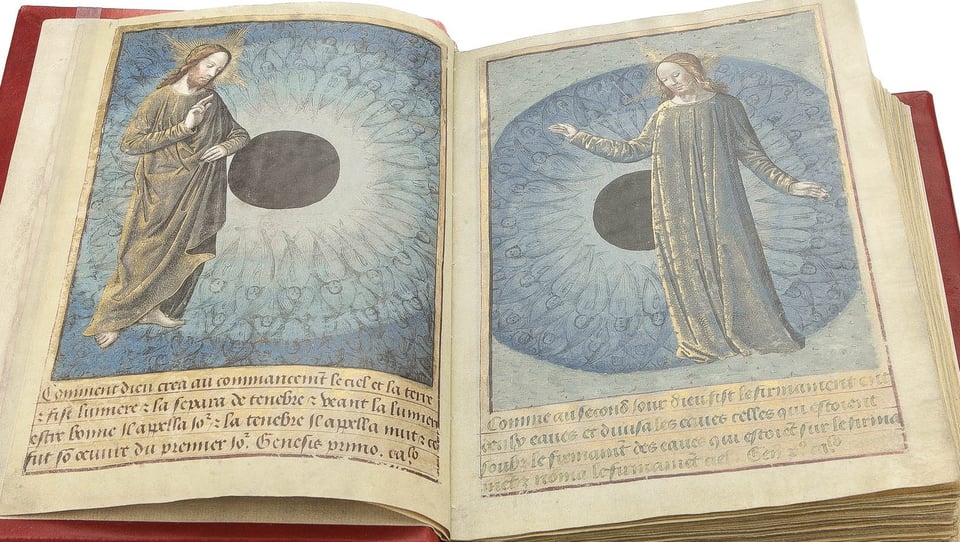 Comment dieu crea au commancemt le ciel et la terre
⁊ fist lumiere ⁊ la sepaRa de tenebre ⁊ veant la lumiere
estre bonne Il apella Jor ⁊ la tenebre Il apella nuit ⁊ ce
fut so oeuvre du premier Jor. Genesis primo. ca.lo
Comme au second Jour dieu fist le firmament
eaues et divisa les eaues celles qui estoient
soubz le firmamt des eaues qui estoiet sur le firma
⁊ nōma le firmament ciel Gen